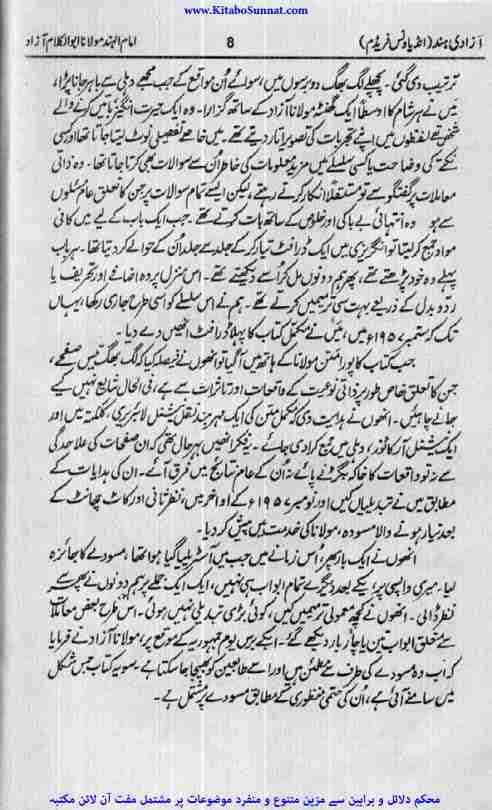 www.KitaboSunnat.com
آزادی ہند (انڈیا ونس فریڈم)
8
امام الہند مولانا ابوالکلام آزاد
ترتیب دی گئی۔ پچھلے لگ بھگ دو برسوں میں، سوائے اُن مواقع کے جب مجھے دہلی سے باہر جانا پڑا،
میں نے ہر شام کا اوسطاً ایک گھنٹہ مولانا آزاد کے ساتھ گزارا۔ وہ ایک حیرت انگیز باتیں کرنے والے
شخص تھے لفظوں میں اپنے تجربات کی تصویر اتار دیتے تھے۔ میں خاصے تفصیلی نوٹ لیتا جاتا تھا اور کسی
نکتے کی وضاحت یا کسی سلسلے میں مزید معلومات کی خاطر اُن سے سوالات بھی کرتا جاتا تھا۔ وہ ذاتی
معاملات پر گفتگو سے تو مستقلاً انکار کرتے رہتے، لیکن ایسے تمام سوالات پر جن کا تعلق عام مسئلوں
سے ہو وہ انتہائی بے باکی اور خلوص کے ساتھ بات کرتے تھے۔ جب ایک باب کے لیے میں کافی
مواد جمع کر لیتا تو انگریزی میں ایک ڈرافٹ تیار کر کے جلد سے جلد اُن کے حوالے کر دیتا تھا۔ ہر باب
پہلے وہ خود پڑھتے تھے، پھر ہم دونوں مل کر اُسے دیکھتے تھے۔ اس منزل پر وہ اضافے اور تحریف یا
ردّ و بدل کے ذریعے بہت سی ترمیمیں کرتے تھے۔ ہم نے اس سلسلے کو اسی طرح جاری رکھا، یہاں
تک کہ ستمبر ۱۹۵۷ء میں، میں نے مکمل کتاب کا پہلا ڈرافٹ انھیں دے دیا۔
جب کتاب کا پورا متن مولانا کے ہاتھ میں آگیا تو انھوں نے فیصلہ کیا کہ لگ بھگ تیس صفحے،
جن کا تعلق خاص طور پر ذاتی نوعیت کے واقعات اور تاثرات سے ہے، فی الحال شایع نہیں کیے
جانے چاہئیں۔ انھوں نے ہدایت دی کہ مکمل متن کی ایک مہر بند نقل نیشنل لائبریری، کلکتہ میں اور
ایک نیشنل آرکائوز، دہلی میں جمع کرا دی جائے۔ یہ فکر انھیں بہر حال تھی کہ ان صفحات کی علاحدگی
سے نہ تو واقعات کا خاکہ بگڑنے پائے نہ اُن کے عام نتائج میں فرق آئے۔ ان کی ہدایات کے
مطابق میں نے تبدیلیاں کیں اور نومبر ۱۹۵۷ء کے اواخر میں، نظر ثانی اور کاٹ چھانٹ کے
بعد تیار ہونے والا مسودہ، مولانا کی خدمت میں پیش کر دیا۔
انھوں نے ایک بار پھر، اُس زمانے میں جب میں آسٹریلیا گیا ہوا تھا، مسودے کا جائزہ
لیا۔ میری واپسی پر، یکے بعد دیگرے تمام ابواب ہی نہیں، ایک ایک جملے پر ہم دونوں نے پھر سے
نظر ڈالی۔ انھوں نے کچھ معمولی ترمیمیں کیں، کوئی بڑی تبدیلی نہیں ہوئی۔ اس طرح بعض معاملات
سے متعلق ابواب تین یا چار بار دیکھے گئے۔ اسکے برس یوم جمہوریہ کے موقع پر، مولانا آزاد نے فرمایا
کہ اب وہ مسودے کی طرف سے مطمئن ہیں اور اسے طابعین کو بھیجا جا سکتا ہے۔ سو یہ کتاب جس شکل
میں سامنے آئی ہے، اُن کی حتمی منظوری کے مطابق مسودے پر مشتمل ہے۔
محکم دلائل و براہین سے مزین متنوع و منفرد موضوعات پر مشتمل مفت آن لائن مکتبہ